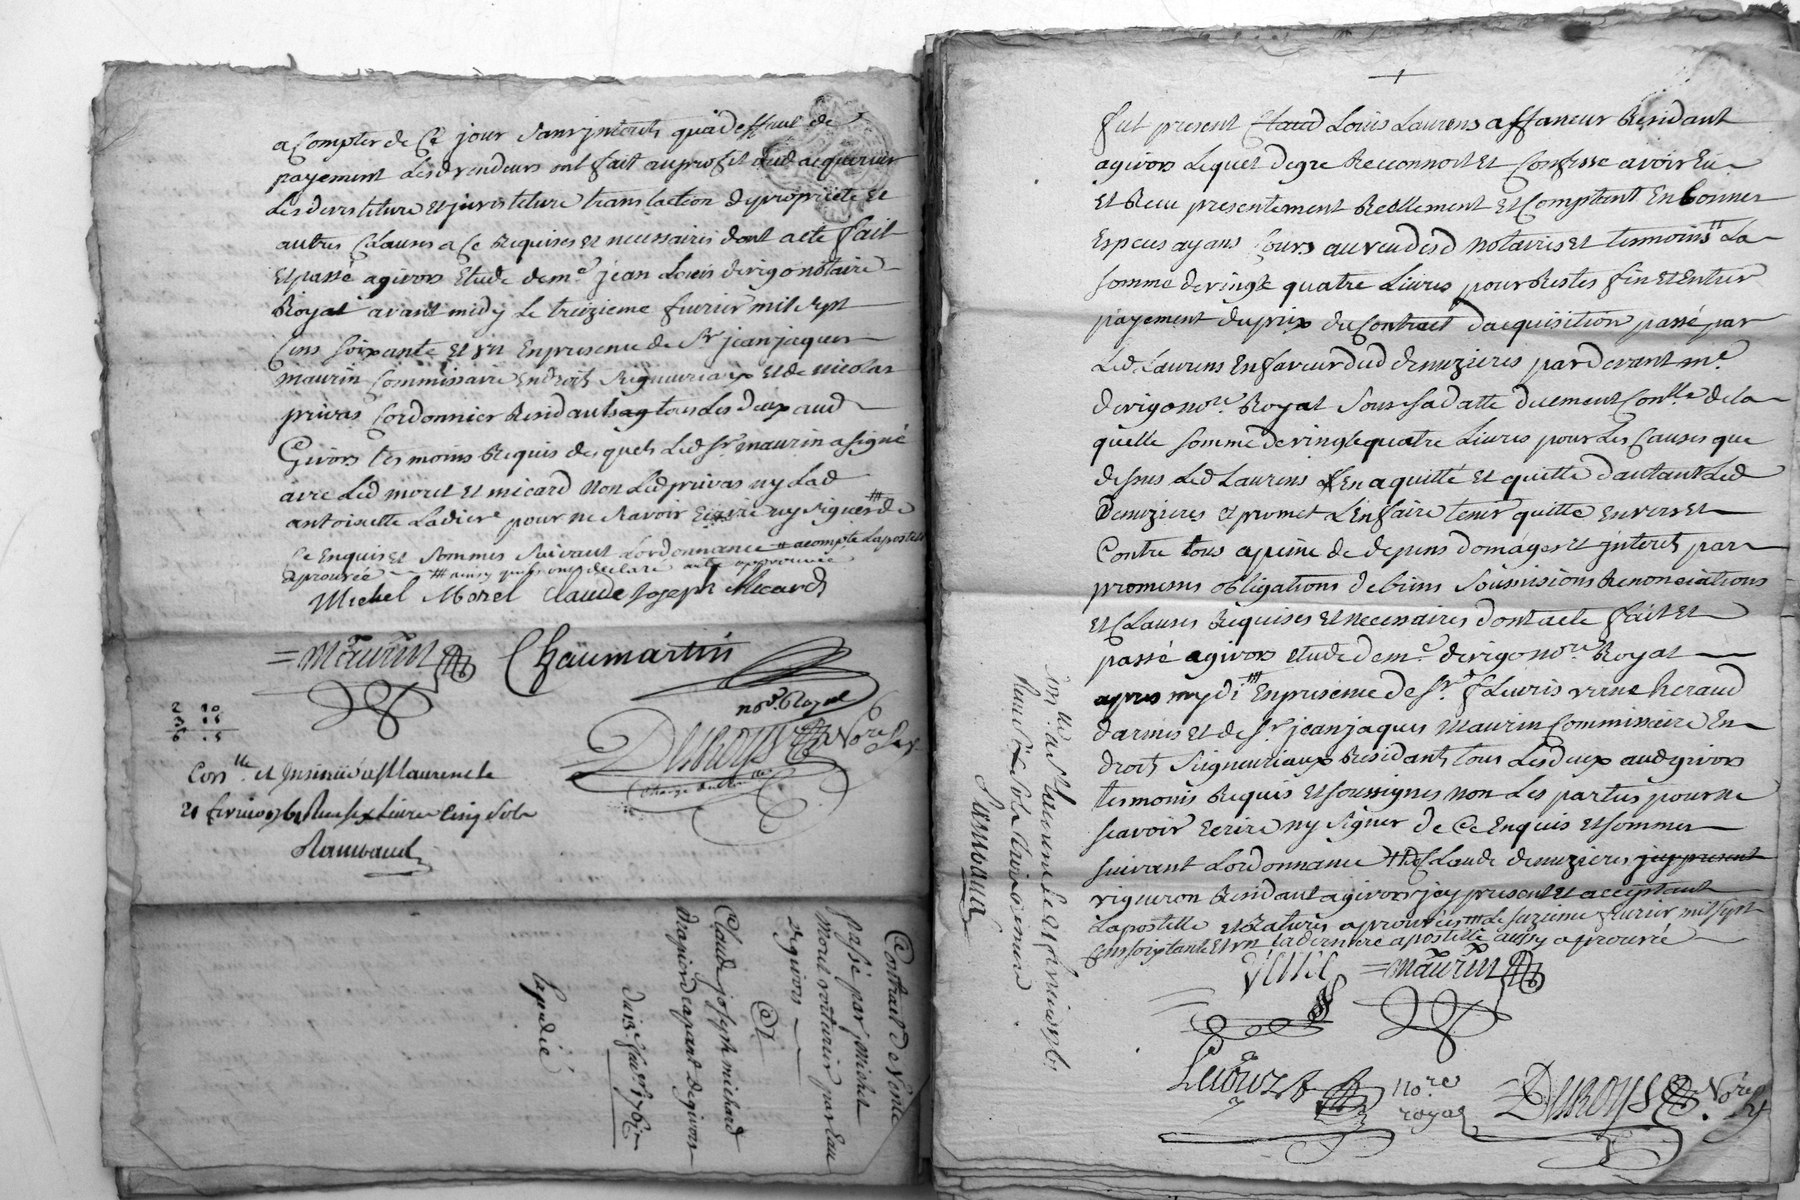 a Compter de Ce jour Sans jnterets qua deffaut de
payement Lesd vendeurs ont fait au profit dud acquereur
Les devestiture et jnvestiture translaction de propriete et
autres Clauses a Ce Requises et necessaires dont acte fait
et passé a givors Etude de me jean Louis derigo notaire
Royal avant midy Le treizieme fevrier mil Sept
Cens Soixante et un En presence de Sr jean jaques
maurin Commissaire En droits Seigneuriaux et de nicolas
privas Cordonnier Residants ag tous Les deux aud
Givors tesmoins Requis desquels Led Sr maurin a signé
avec Led morel et micard non Led privas ny Lad
antoinette Ladiere pour ne Scavoir Ecrire ny Signer de
Ce Enquis et Sommés Suivant Lordonnance acompte Lapostille
aprouvée ainsy quils ont declaré aussy approuvée
Michel Morel Claude Joseph Micard
Maurin Chaumartin
nore Royal
2 10
3 15
6 5
Duboys Nore
Conlle et Insinué a St Laurent le
21 fevrier 1761 Reçu six Livres Cinq Sols
Rambaud
Contrat de Vente
passé par michel
Morel voiturier par Eau
de givors
A
Claude joseph michard
de givors
Du 13e fevr 1761
Expedié
fut present Claud Louis Laurens affaneur Residant
a givors Lequel de gre Reconnoit et Confesse avoir Eu
et Recu presentement Reellement et Comptant En bonnes
Especes ayans Cours au veu desd notaires et tesmoins La
Somme de vingt quatre Livres pour Restes fin et Entier
payement du prix du Contract dacquisition passé par
Led Laurens En faveur dud demezieres par devant me
derigo nore Royal Sous Sa datte duement Conlle de la
quelle Somme de vingt quatre Livres pour Les Causes que
dessus Led Laurens En a quitté et quitte dautant Led
Demezieres et promet L'En faire tenir quitte Envers et
Contre tous a peine de depens domages et jnterets par
promesses obligations de biens Soumissions Renonciations
et Clauses Requises et necessaires dont acte fait et
passé a givors etude de me derigo nore Royal
apres mydi En presence de Sr fleuris verne heraud
darmes et de Sr jean jaques Maurin Commissaire En
droits Seigneuriaux Residants tous Les deux aud givors
tesmoins Requis et soussignes non Les parties pour ne
scavoir Ecrire ny Signer de Ce Enquis et sommés
suivant Lordonnance Claude demezieres jcy present
vigneron Residant a givors jcy present et acceptant
Lapostille et Ratures aprouvées Le Seizieme fevrier mil Sept
Cens soixante et un La derniere apostille aussy aprouvée
Maurin
nore
royal
Duboys Nore
Conlle a St Laurent le 21 fevrier 1761
Rambaud